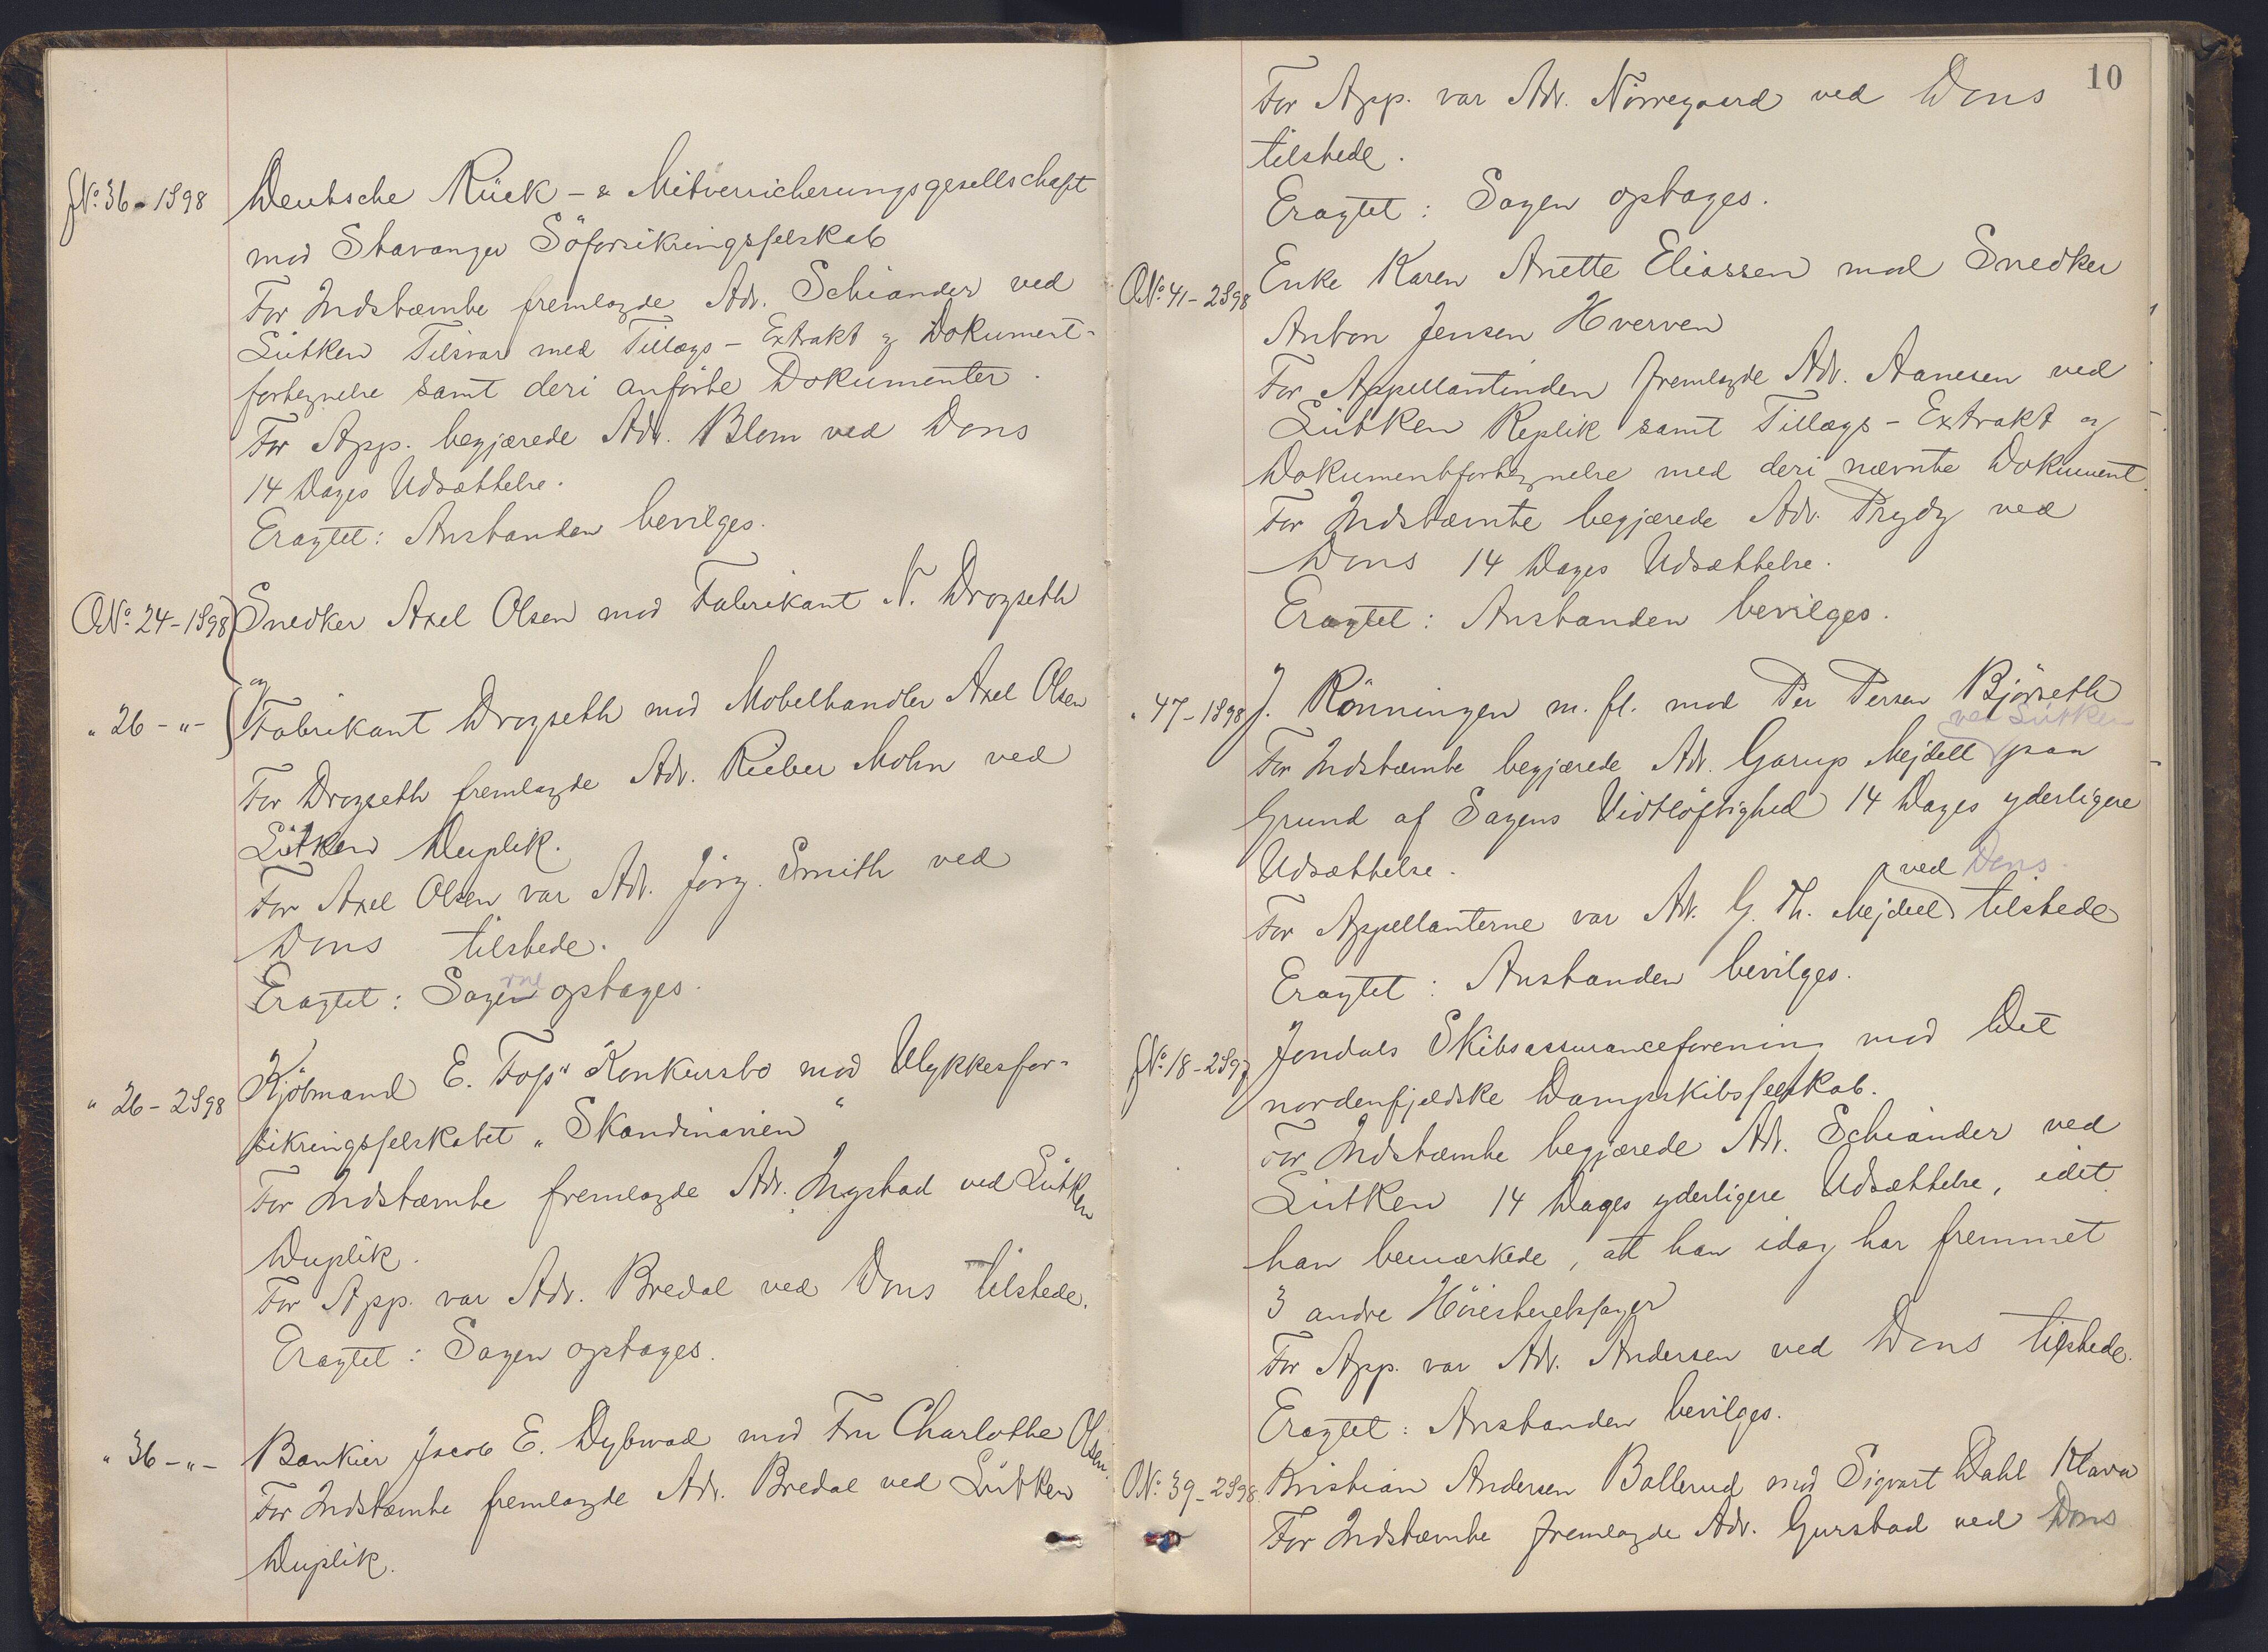 JNo. 36-1S98 Deutsche Rück- & Mitversicherungsgesellschaft
mod Stavanger Söforsikringsselskab
For Indstævnte fremlagde Adv. Schiander ved
Lütken Tilsvar med Tillægs-Extrakt og Dokument-
fortegnelse samt deri anförte Dokumenter.
For App. begjærede Adv. Blom ved Dons
14 Dages Udsættelse.
Eragtet: Anstanden bevilges.
ONo. 24-1S98 Snedker Axel Olsen mod Fabrikant N. Drogseth
og
" 26-"- Fabrikant Drogseth mod Møbelhandler Axel Olsen
For Drogseth fremlagde Adv. Rieber Mohn ved
Lütken Duplik.
For Axel Olsen var Adv. Jörg. Smith ved
Dons tilstede.
rne
Eragtet: Sagen optages.
" 26-2S98 Kjöbmand E. Foss' Konkursbo mod Ulykkesfor-
sikringsselskabet "Skandinavien"
For Indstævnte fremlagde Adv. Ingstad ved Lütken
Duplik.
For App. var Adv. Bredal ved Dons tilstede.
Eragtet: Sagen optages.
" 36-"- Bankier Jacob E. Dybwad mod Fru Charlotte Olsen.
For Indstævnte fremlagde Adv. Bredal ved Lütken
Duplik.
10
For App. var Adv. Nörregaard ved Dons
tilstede.
Eragtet: Sagen optages.
ONo. 41-2S98 Enke Karen Anette Eliassen mod Snedker
Anton Jensen Hverven
For Appellantinden fremlagde Adv. Aanesen ved
Lütken Replik samt Tillægs-Extrakt og
Dokumentfortegnelse med deri nævnte Dokument.
For Indstævnte begjærede Adv. Prydz ved
Dons 14 Dages Udsættelse.
Eragtet: Anstanden bevilges.
" 47-1S98 J. Rönningen m. fl. mod Per Persen Björseth
ved Lütken
For Indstævnte begjærede Adv. Garup Mejdell paa
Grund af Sagens Vidtlöftighed 14 Dages yderligere
Udsættelse.
ved Dons.
For Appellanterne var Adv. G. Th. Mejdell tilstede
Eragtet: Anstanden bevilges.
JNo. 18-2S97 Jondals Skibsassuranceforening mod Det
nordenfjeldske Dampskibsselskab.
For Indstævnte begjærede Adv. Schiander ved
Lütken 14 Dages yderligere Udsættelse, idet
han bemærkede, at han idag har fremmet
3 andre Höiesteretssager
For App. var Adv. Andersen ved Dons tilstede.
Eragtet: Anstanden bevilges.
ONo. 39-2S98. Kristian Andersen Ballerud mod Sigvart Dahl Klava
For Indstævnte fremlagde Adv. Gurstad ved Dons